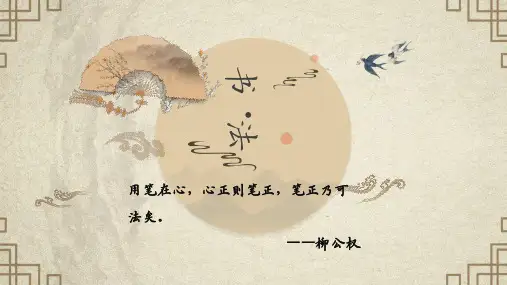 书·法
用笔在心，心正则笔正，笔正乃可
法矣。
——柳公权